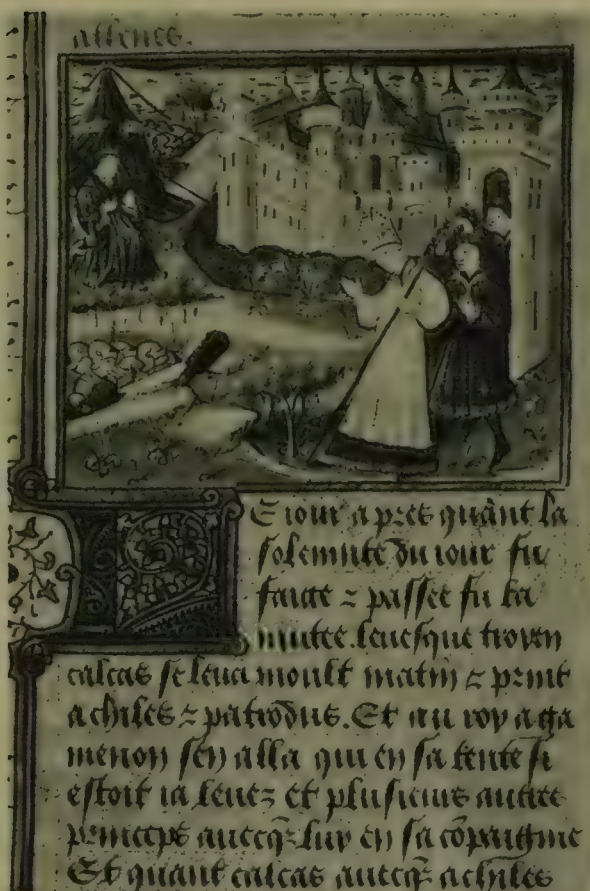 assence.
LE iour apres quãnt la
solemnite du iour fu
faicte ⁊ passee fu la
leuesque troyen
calcas se leua moult matin ⁊ print
achiles ⁊ patrodus. Et au roy aga
menon sen alla qui en sa tente si
estoit ia leuez et plusieurs autres
princeps auecq̃z luy en sa cõpaignie
Et quant calcas auecq̃z achiles